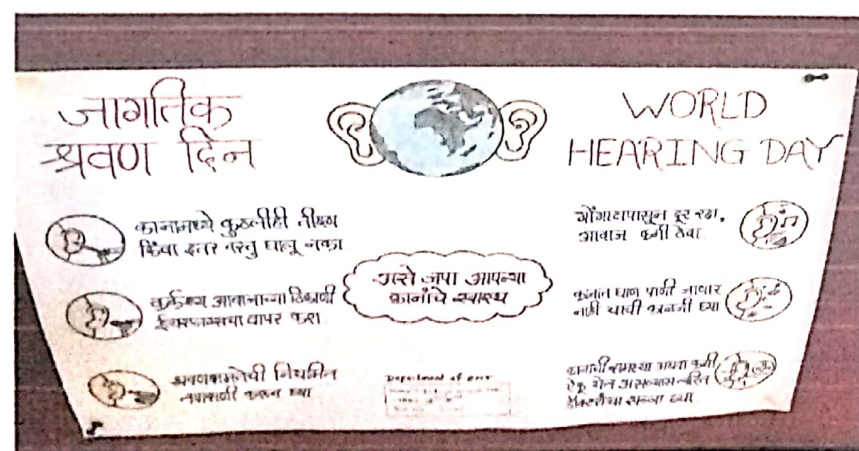 जागतिक
श्रवण दिन
WORLD
HEARING DAY
कानामध्ये कुठलीही तीक्ष्ण
किंवा इतर वस्तु घालू नका
कर्कश्य आवाजाच्या ठिकाणी
ईयरप्लग्सचा वापर करा
श्रवणक्षमतेची नियमित
तपासणी करून घ्या
असे जपा आपल्या
कानांचे स्वास्थ
गोंगाटापासून दूर रहा,
आवाज कमी ठेवा
कानात घाण पाणी जाणार
नाही याची काळजी घ्या
कानाची समस्या अथवा कमी
ऐकू येत असल्यास त्वरित
डॉक्टरांचा सल्ला घ्या
Department of ENT